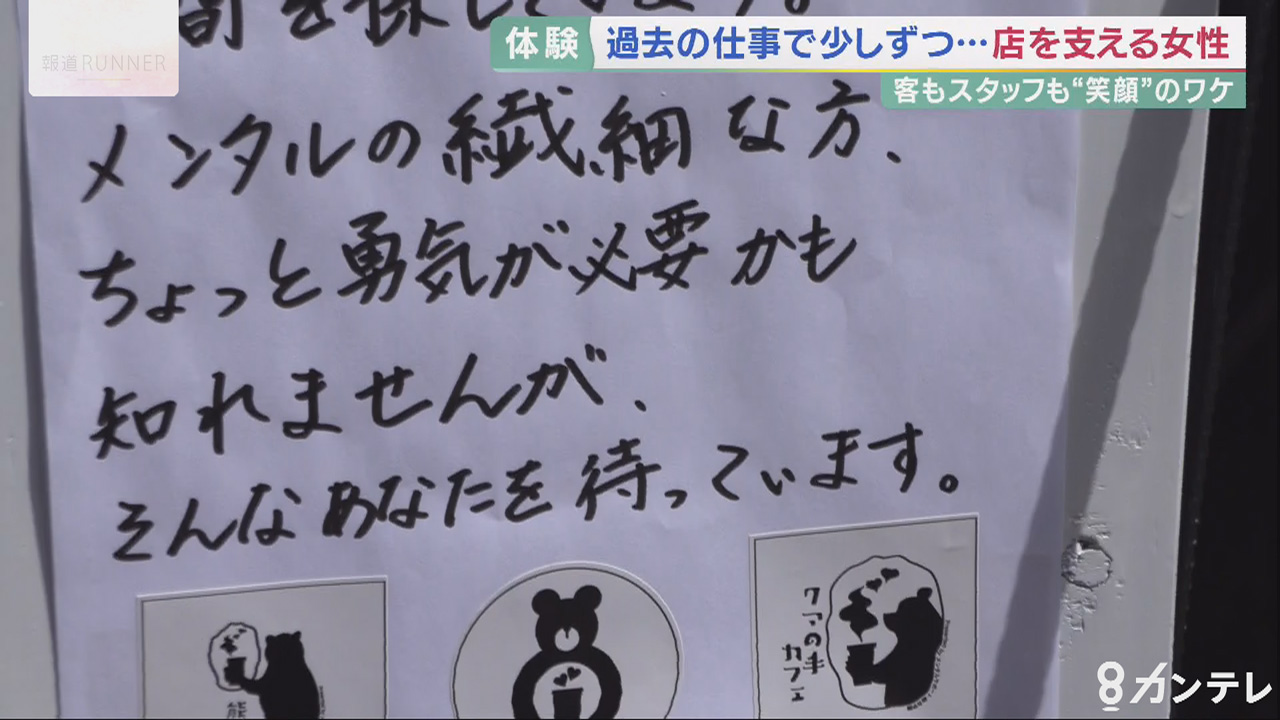 報道RUNNER
体験
過去の仕事で少しずつ…店を支える女性
客もスタッフも“笑顔”のワケ
間を探しています。
メンタルの繊細な方、
ちょっと勇気が必要かも
知れませんが、
そんなあなたを待っています。
クマの手
カフェ
熊
8カンテレ